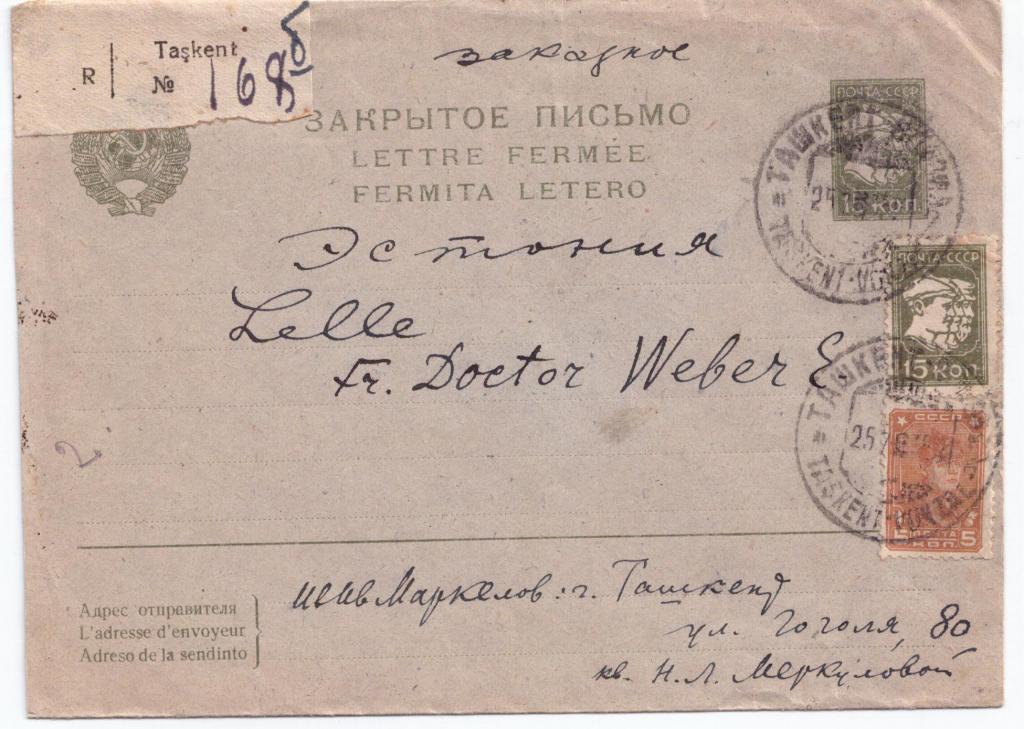 Taşkent
R № 168б
заказное
ЗАКРЫТОЕ ПИСЬМО
LETTRE FERMÉE
FERMITA LETERO
ПОЧТА СССР
15 КОП.
ТАШКЕНТ ВОКЗАЛ
25 7
TAŞKENT-VOKZAL
Эстония
Lelle
Fr. Doctor Weber E
ПОЧТА·СССР
15 КОП.
ТАШКЕНТ
25 7
TAŞKENT-VOKZAL
СССР
5 ПОЧТА 5
КОП.
Адрес отправителя
L'adresse d'envoyeur
Adreso de la sendinto
Маркелов: г. Ташкенд
ул. Гоголя, 80
кв. Н. Л. Меркуловой